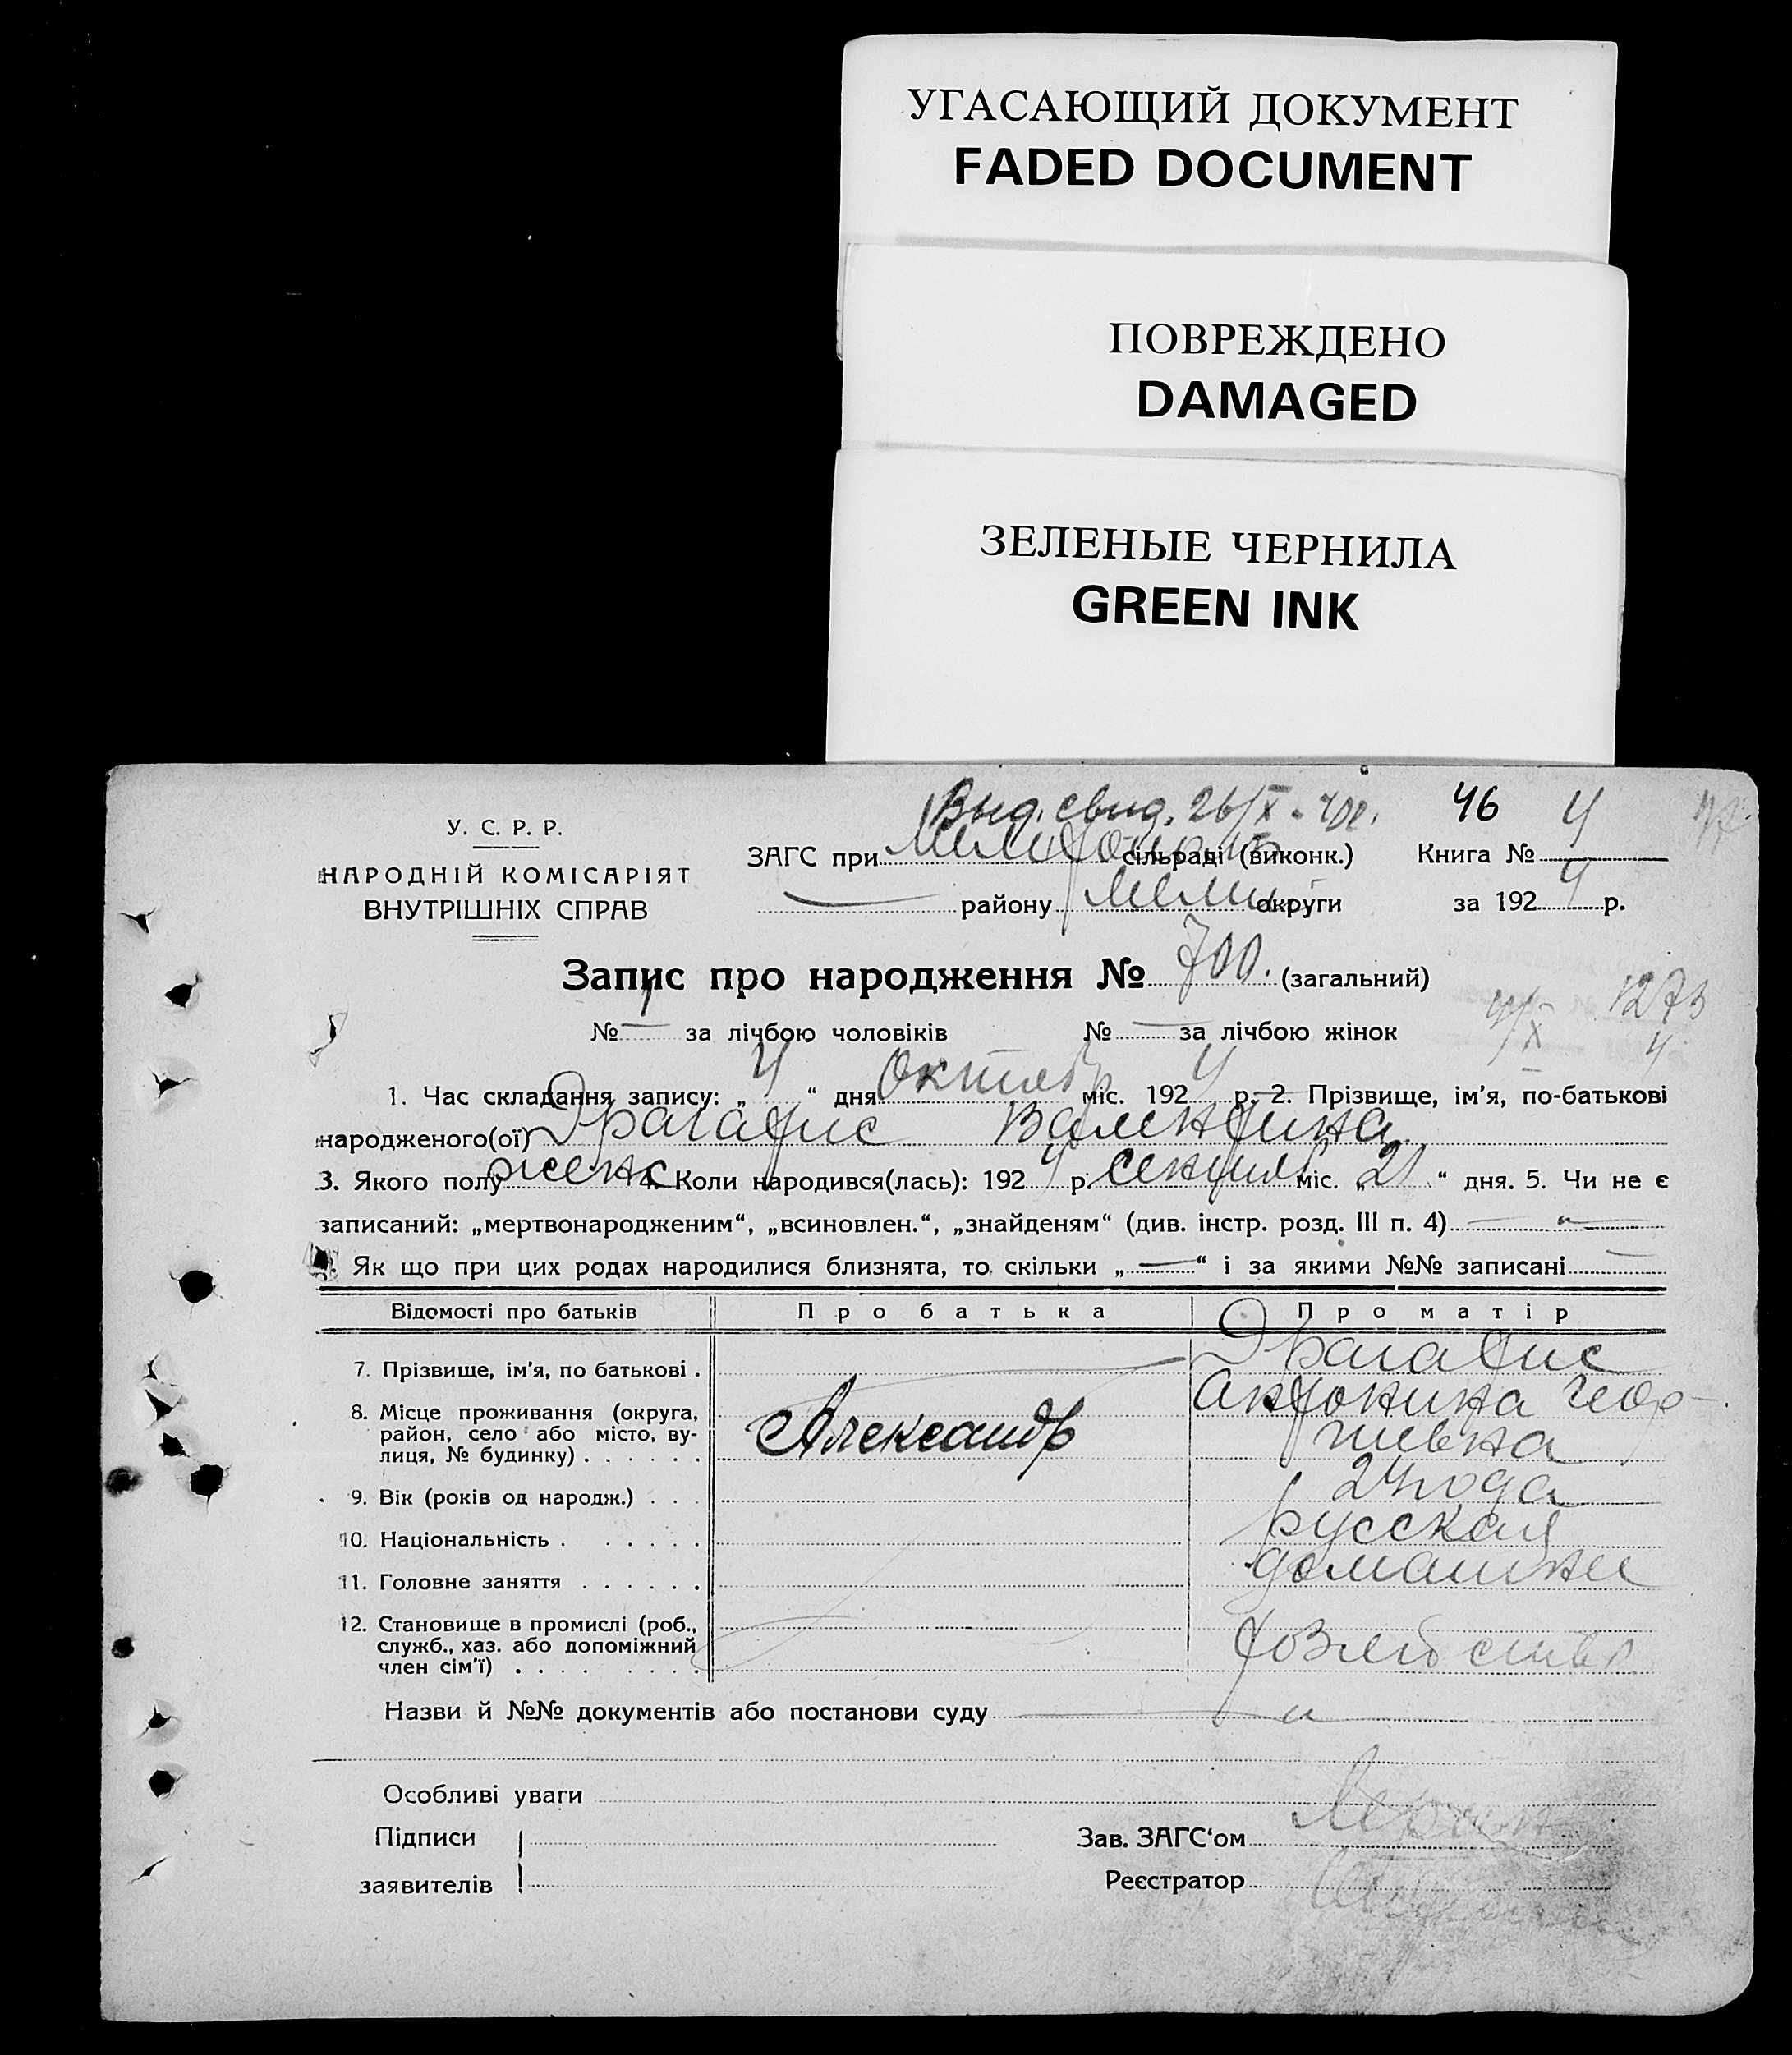 УГАСАЮЩИЙ ДОКУМЕНТ
FADED DOCUMENT
ПОВРЕЖДЕНО
DAMAGED
ЗЕЛЕНЫЕ ЧЕРНИЛА
GREEN INK
Выд. свид. 26/X - 40г. 46 4
У. С. Р. Р.
НАРОДНІЙ КОМІСАРІЯТ
ВНУТРІШНІХ СПРАВ
ЗАГС при сільраді (виконк.) Книга №
— району Мелит округи за 1924 р.
Запис про народження № 700. (загальний)
№ — за лічбою чоловіків № — за лічбою жінок
4/X 1273
4
1. Час складання запису: „ 4 “ дня Октябр міс. 1924 р. 2. Прізвище, ім'я, по-батькові
народженого(ої) Драгатис Валентина
3. Якого полу женс 4. Коли народився(лась): 1924 р. Сентяб міс. „ 21 “ дня. 5. Чи не є
записаний: „мертвонародженим“, „всиновлен.“, „знайденям“ (див. інстр. розд. III п. 4) — „ —
Як що при цих родах народилися близнята, то скільки „ — “ і за якими №№ записані —
Відомості про батьків Про батька Про матір
7. Прізвище, ім'я, по батькові . — Драгатис
Антонина Геор-
гиевна
8. Місце проживання (округа,
район, село або місто, ву-
лиця, № будинку) . . . . . . Александр
9. Вік (років од народж.) . . . 24 года
10. Національність . . . . . . русская
11. Головне заняття . . . . . . домашняя
12. Становище в промислі (роб.,
служб., хаз. або допоміжний
член сім'ї) . . . . . . . . .
Назви й №№ документів або постанови суду — „ —
Особливі уваги
Підписи
заявителів
Зав. ЗАГС‘ом
Реєстратор